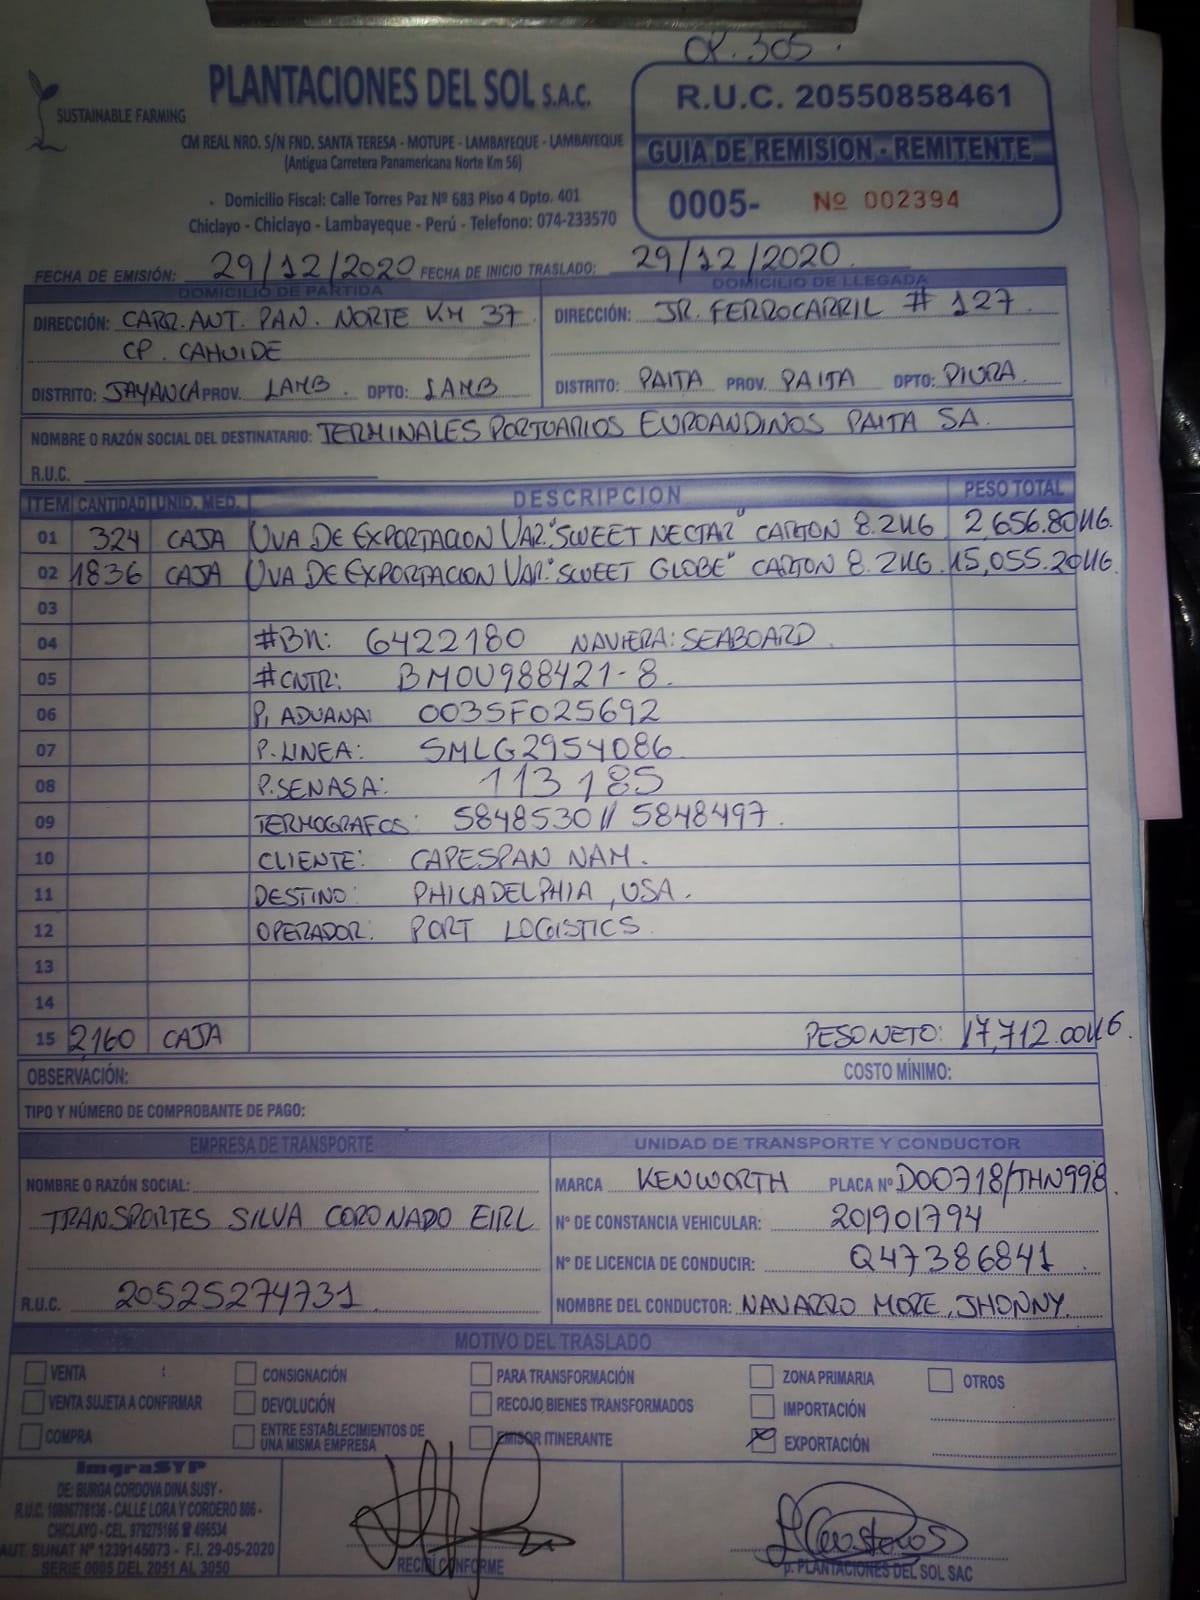 OP. 305.
SUSTAINABLE FARMING
PLANTACIONES DEL SOL S.A.C.
CM REAL NRO. S/N FND. SANTA TERESA - MOTUPE - LAMBAYEQUE - LAMBAYEQUE
(Antigua Carretera Panamericana Norte Km 56)
Domicilio Fiscal: Calle Torres Paz Nº 683 Piso 4 Dpto. 401
Chiclayo - Chiclayo - Lambayeque - Perú - Telefono: 074-233570
R.U.C. 20550858461
GUIA DE REMISION - REMITENTE
0005- Nº 002394
FECHA DE EMISIÓN: 29/12/2020 FECHA DE INICIO TRASLADO: 29/12/2020
DOMICILIO DE PARTIDA
DIRECCIÓN: CARR. ANT. PAN. NORTE KM 37
CP. CAHUIDE
DISTRITO: JAYANCA PROV. LAMB. DPTO: LAMB
DOMICILIO DE LLEGADA
DIRECCIÓN: JR. FERROCARRIL # 127
DISTRITO: PAITA PROV. PAITA DPTO: PIURA.
NOMBRE O RAZÓN SOCIAL DEL DESTINATARIO: TERMINALES PORTUARIOS EUROANDINOS PAITA SA.
R.U.C.
ITEM CANTIDAD UNID. MED. DESCRIPCION PESO TOTAL
01 324 CAJA UVA DE EXPORTACION VAR. "SWEET NECTAR" CARTON 8.2KG 2,656.80KG.
02 1836 CAJA UVA DE EXPORTACION VAR. "SWEET GLOBE" CARTON 8.2KG. 15,055.20KG.
03
04 #BK: 6422180 NAVIERA: SEABOARD
05 #CNTR: BMOU988421-8.
06 P. ADUANA: 003SF025692
07 P. LINEA: SMLG2954086
08 P. SENASA: 113185
09 TERMOGRAFOS: 5848530 // 5848497.
10 CLIENTE: CAPESPAN NAM.
11 DESTINO: PHILADELPHIA, USA.
12 OPERADOR: PORT LOGISTICS
13
14
15 2,160 CAJA PESO NETO: 17,712.00KG.
OBSERVACIÓN: COSTO MÍNIMO:
TIPO Y NÚMERO DE COMPROBANTE DE PAGO:
EMPRESA DE TRANSPORTE
NOMBRE O RAZÓN SOCIAL:
TRANSPORTES SILVA CORONADO EIRL
R.U.C. 20525274731
UNIDAD DE TRANSPORTE Y CONDUCTOR
MARCA KENWORTH PLACA Nº D0O718/THN998
N° DE CONSTANCIA VEHICULAR: 201901794
N° DE LICENCIA DE CONDUCIR: Q47386841
NOMBRE DEL CONDUCTOR: NAVARRO MORE, JHONNY.
MOTIVO DEL TRASLADO
VENTA CONSIGNACIÓN PARA TRANSFORMACIÓN ZONA PRIMARIA OTROS
VENTA SUJETA A CONFIRMAR DEVOLUCIÓN RECOJO BIENES TRANSFORMADOS IMPORTACIÓN
COMPRA ENTRE ESTABLECIMIENTOS DE UNA MISMA EMPRESA EMISOR ITINERANTE EXPORTACIÓN
ImgraSYP
DE: BURGA CORDOVA DINA SUSY -
R.U.C. 10806778136 - CALLE LORA Y CORDERO 806 -
CHICLAYO - CEL. 979275166 ☎ 496534
AUT. SUNAT Nº 1239145073 - F.I. 29-05-2020
SERIE 0005 DEL 2051 AL 3050
RECIBI CONFORME
p. PLANTACIONES DEL SOL SAC